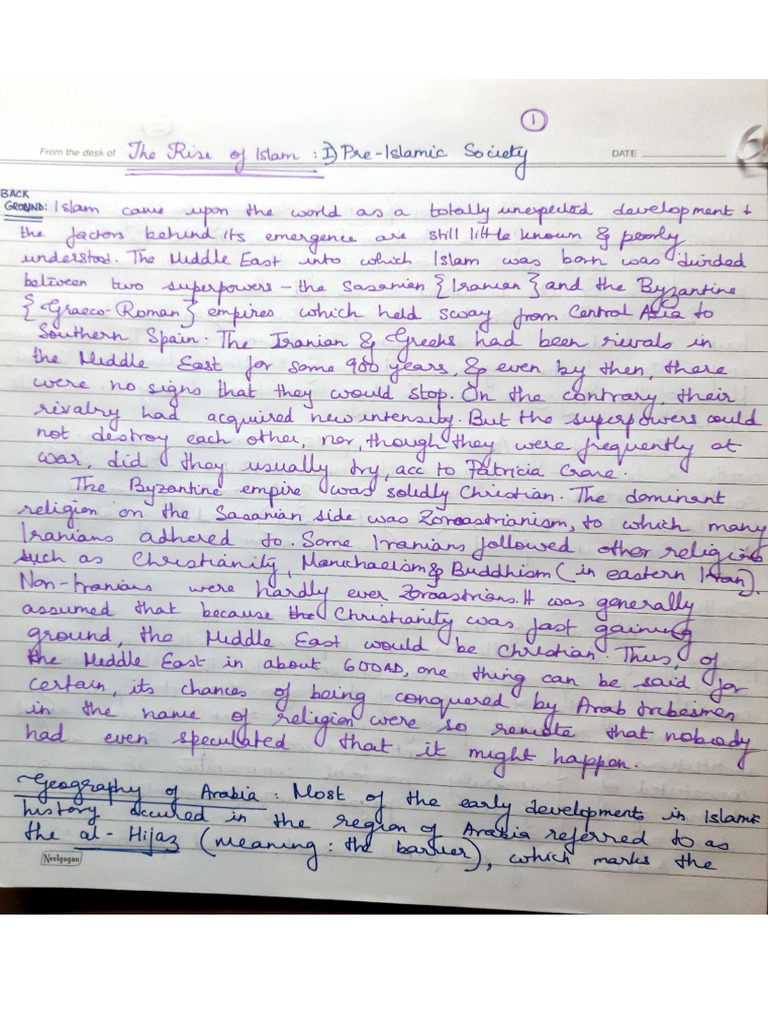 1
From the desk of The Rise of Islam : I) Pre-Islamic Society DATE 6
BACK
GROUND: Islam came upon the world as a totally unexpected development &
the factors behind its emergence are still little known & poorly
understood. The Middle East into which Islam was born was divided
between two superpowers – the Sasanian {Iranian} and the Byzantine
{Graeco-Roman} empires which held sway from Central Asia to
Southern Spain. The Iranian & Greeks had been rivals in
the Middle East for some 900 years, & even by then, there
were no signs that they would stop. On the contrary, their
rivalry had acquired new intensity. But the superpowers could
not destroy each other, nor, though they were frequently at
war, did they usually try, acc to Patricia Crone.
The Byzantine empire was solidly Christian. The dominant
religion on the Sasanian side was Zoroastrianism, to which many
Iranians adhered to. Some Iranians followed other religions
such as Christianity, Manichaeism & Buddhism (in eastern Iran).
Non-Iranians were hardly ever Zoroastrians. It was generally
assumed that because the Christianity was fast gaining
ground, the Middle East would be Christian. Thus, of
the Middle East in about 600AD, one thing can be said for
certain, its chances of being conquered by Arab tribesmen
in the name of religion were so remote that nobody
had even speculated that it might happen.
Geography of Arabia : Most of the early developments in Islamic
history occured in the region of Arabia referred to as
the al-Hijaz (meaning : the barrier), which marks the
Neelgagan